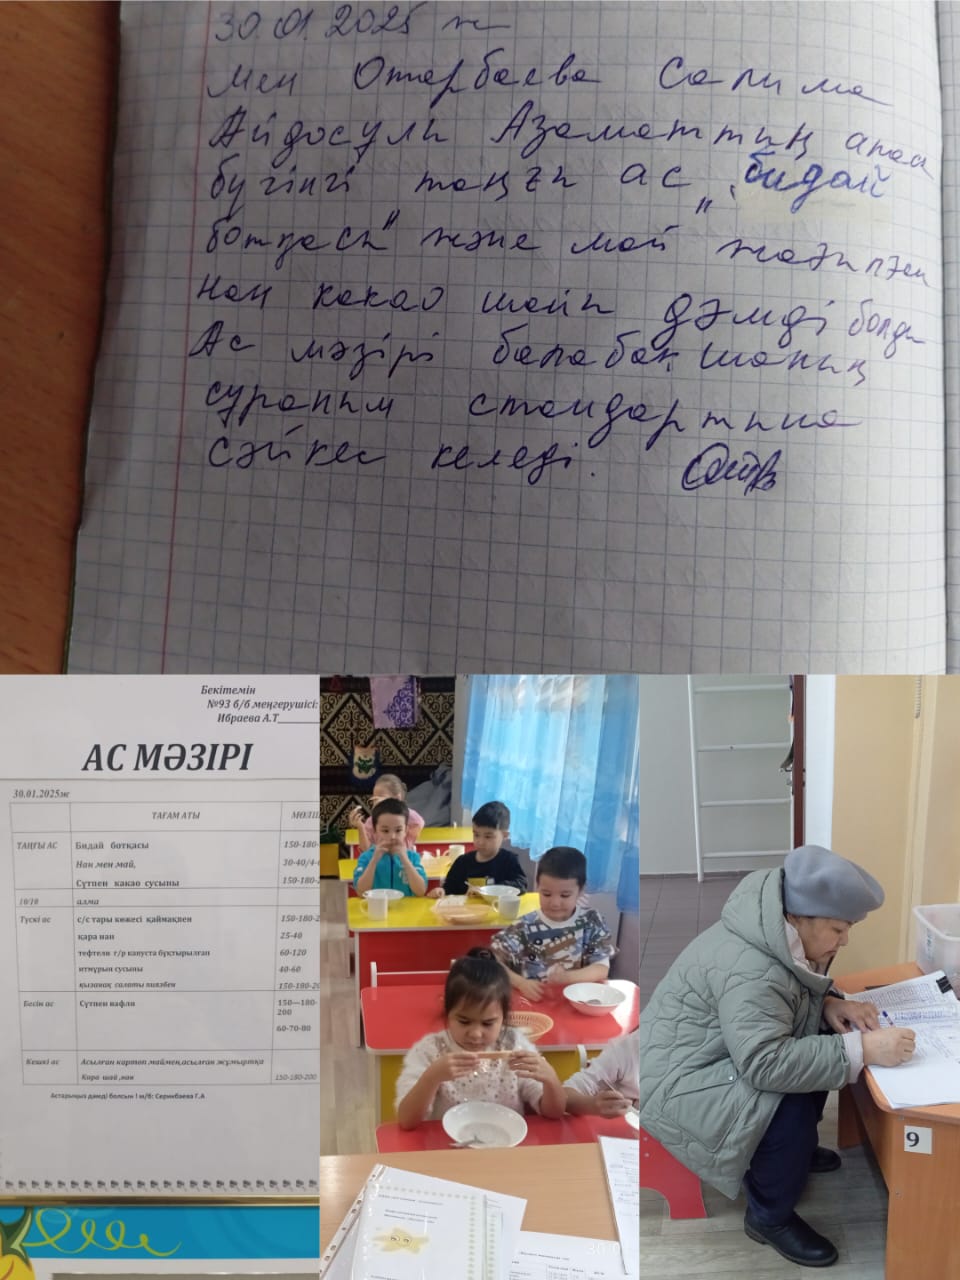 30.01.2025 ж
Мен Отарбаева Салима
Айдосұлы Азаматтың апасы
бүгінгі таңғы ас „бидай
ботқасы" және май жағылған
нан какао шайы дәмді болды
Ас мәзірі балабақшаның
сұраным стандартына
сәйкес келеді.
Бекітемін
№93 б/б меңгерушісі:
Ибраева А.Т
АС МӘЗІРІ
30.01.2025ж
ТАҒАМ АТЫ МӨЛШ
ТАҢҒЫ АС Бидай ботқасы 150-180-
Нан мен май, 30-40/4-
Сүтпен какао сусыны 150-180-
10/10 алма
Түскі ас с/с тары көжесі қаймақпен 150-180-2
қара нан 25-40
тефтели г/р капуста бұқтырылған 60-120
итмұрын сусыны 40-60
қызанақ салаты пиязбен 150-180-20
Бесін ас Сүтпен вафли 150—180-
200
60-70-80
Кешкі ас Асылған картоп маймен,асылған жұмыртқа
Қара шай ,нан 150-180-200
Астарыңыз дәмді болсын ! м/б: Серикбаева Г.А
9